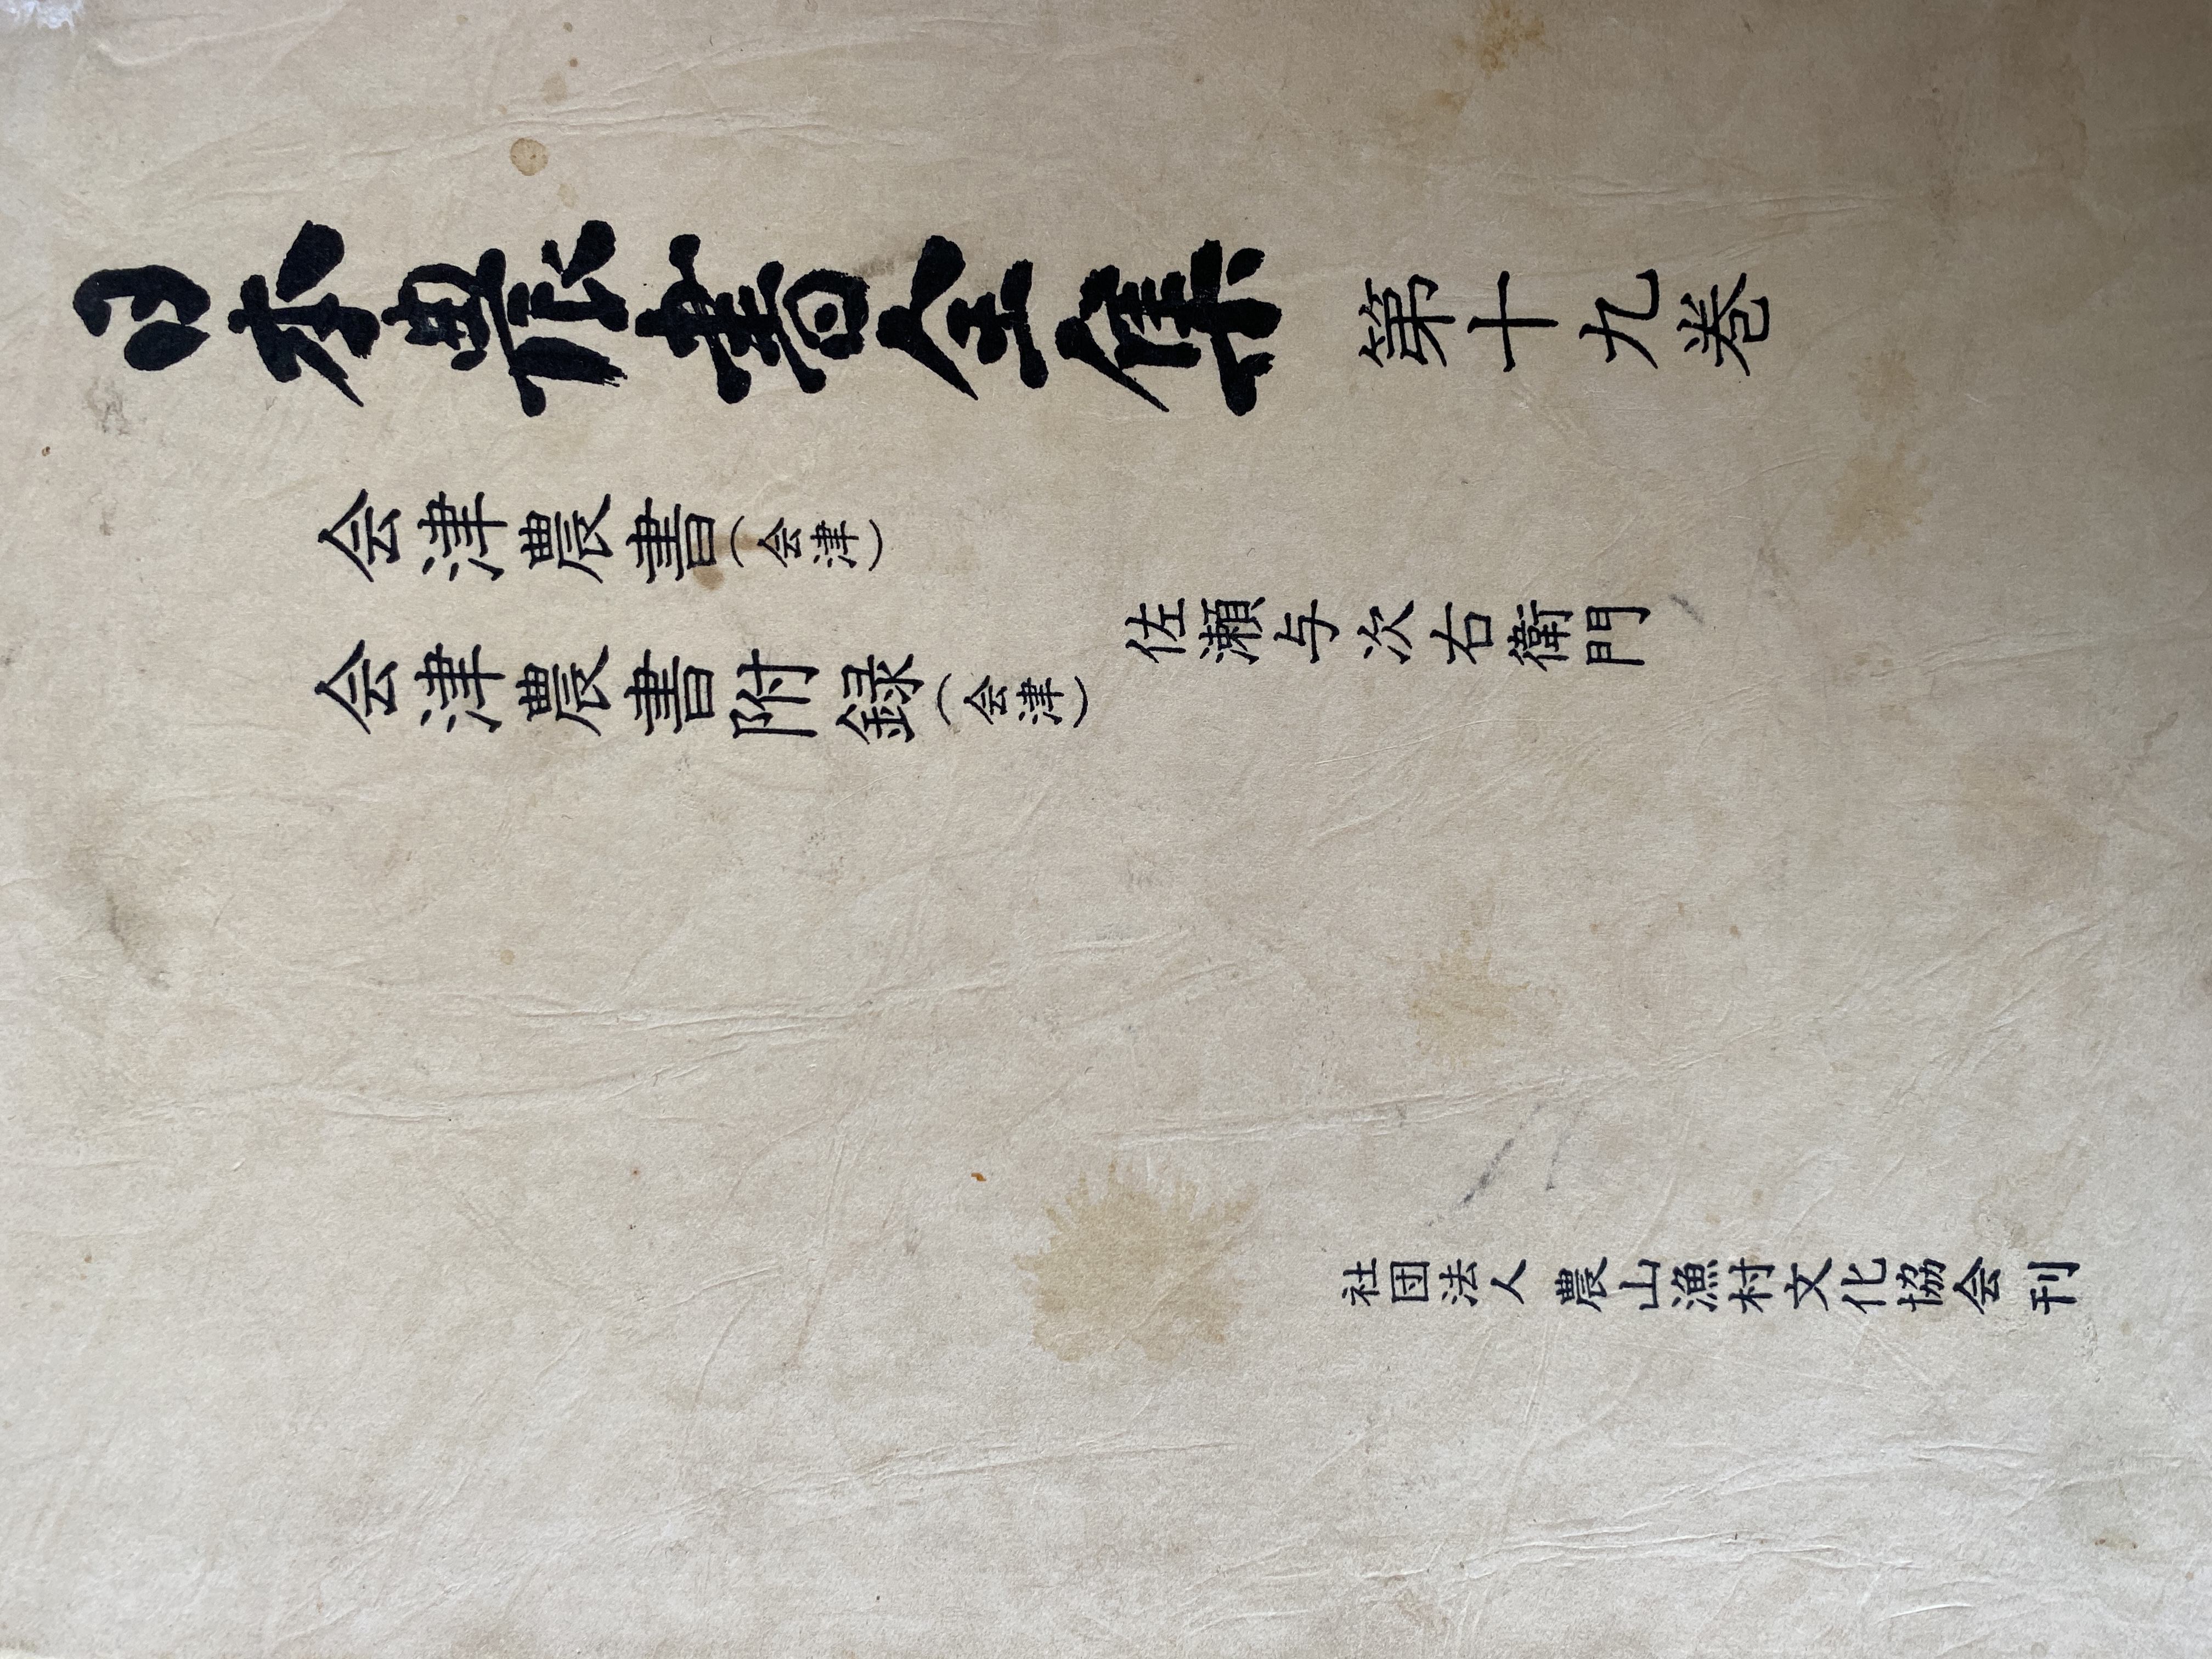 日本農書全集 第十九巻
会津農書（会津）
会津農書附録（会津）
佐瀬与次右衛門
社団法人 農山漁村文化協会 刊